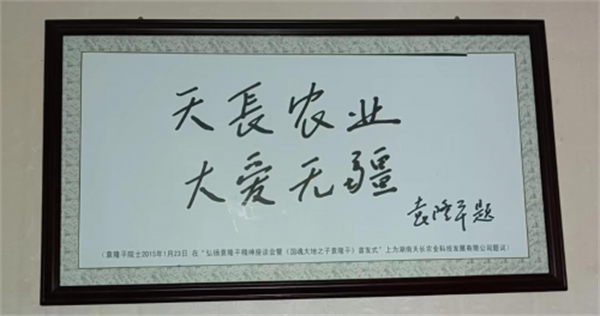 天長农业
大爱无疆
袁隆平题
（袁隆平院士2015年1月23日 在“弘扬袁隆平精神座谈会暨《国魂大地之子袁隆平》首发式”上为湖南天长农业科技发展有限公司题词）